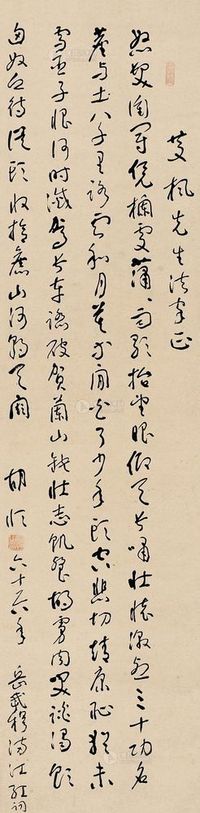 楓先生法家正
怒髮衝冠凭欄處瀟瀟雨歇抬望眼仰天長嘯壯懷激烈三十功名
塵與土八千里路雲和月莫等閒白了少年頭空悲切靖康恥猶未
雪臣子恨何時滅駕長車踏破賀蘭山缺壯志飢餐胡虜肉笑談渴飲
匈奴血待從頭收拾舊山河朝天闕 胡 六十六年 岳武穆滿江紅詞